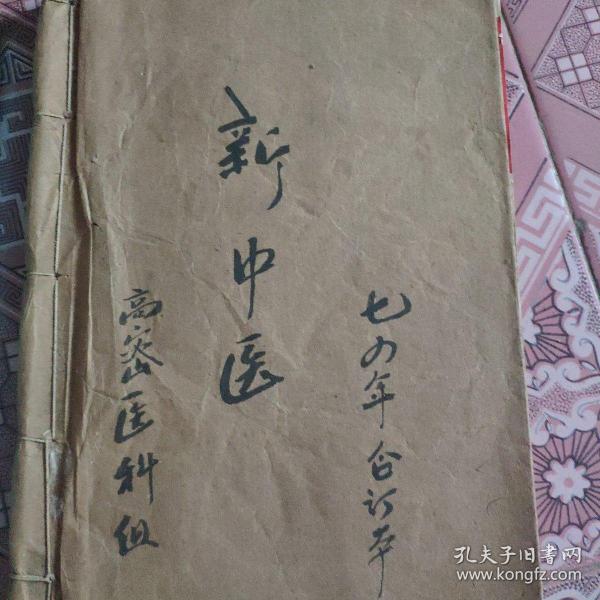 七四年合订本
新中医
高密医科组
孔夫子旧书网
www.kongfz.com